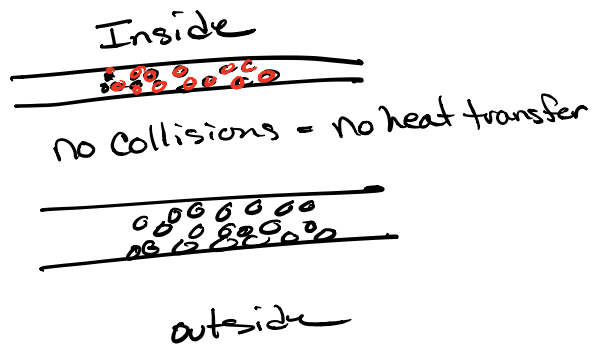 Inside
no collisions = no heat transfer
outside